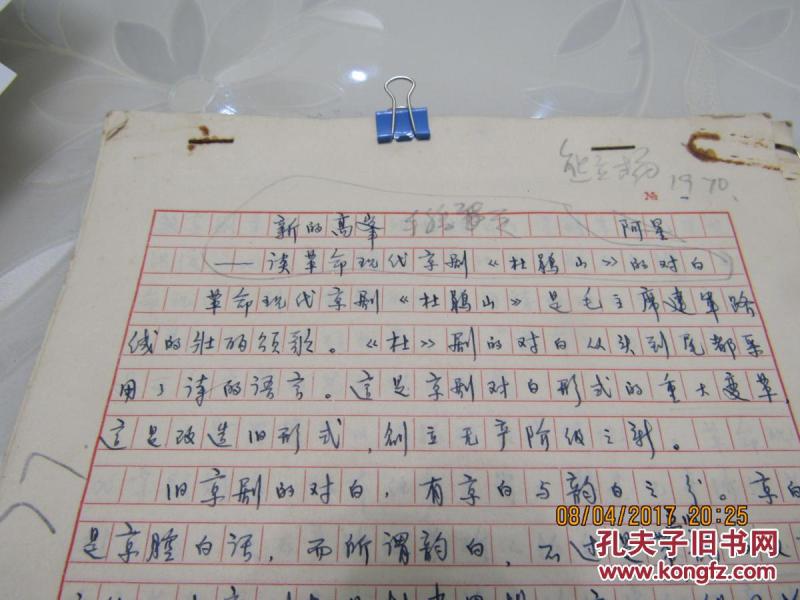 1970.
№
新的高峯 阿星
——谈革命现代京剧《杜鹃山》的对白
革命现代京剧《杜鹃山》是毛主席建军路
线的壮丽颂歌。《杜》剧的对白从头到尾都采
用了诗的语言。这是京剧对白形式的重大变革,
这是改造旧形式,创立无产阶级之新。
旧京剧的对白,有京白与韵白之分。京白
是京腔白话,而所谓韵白,不过是
08/04/2017 20:25
孔夫子旧书网
www.kongfz.com